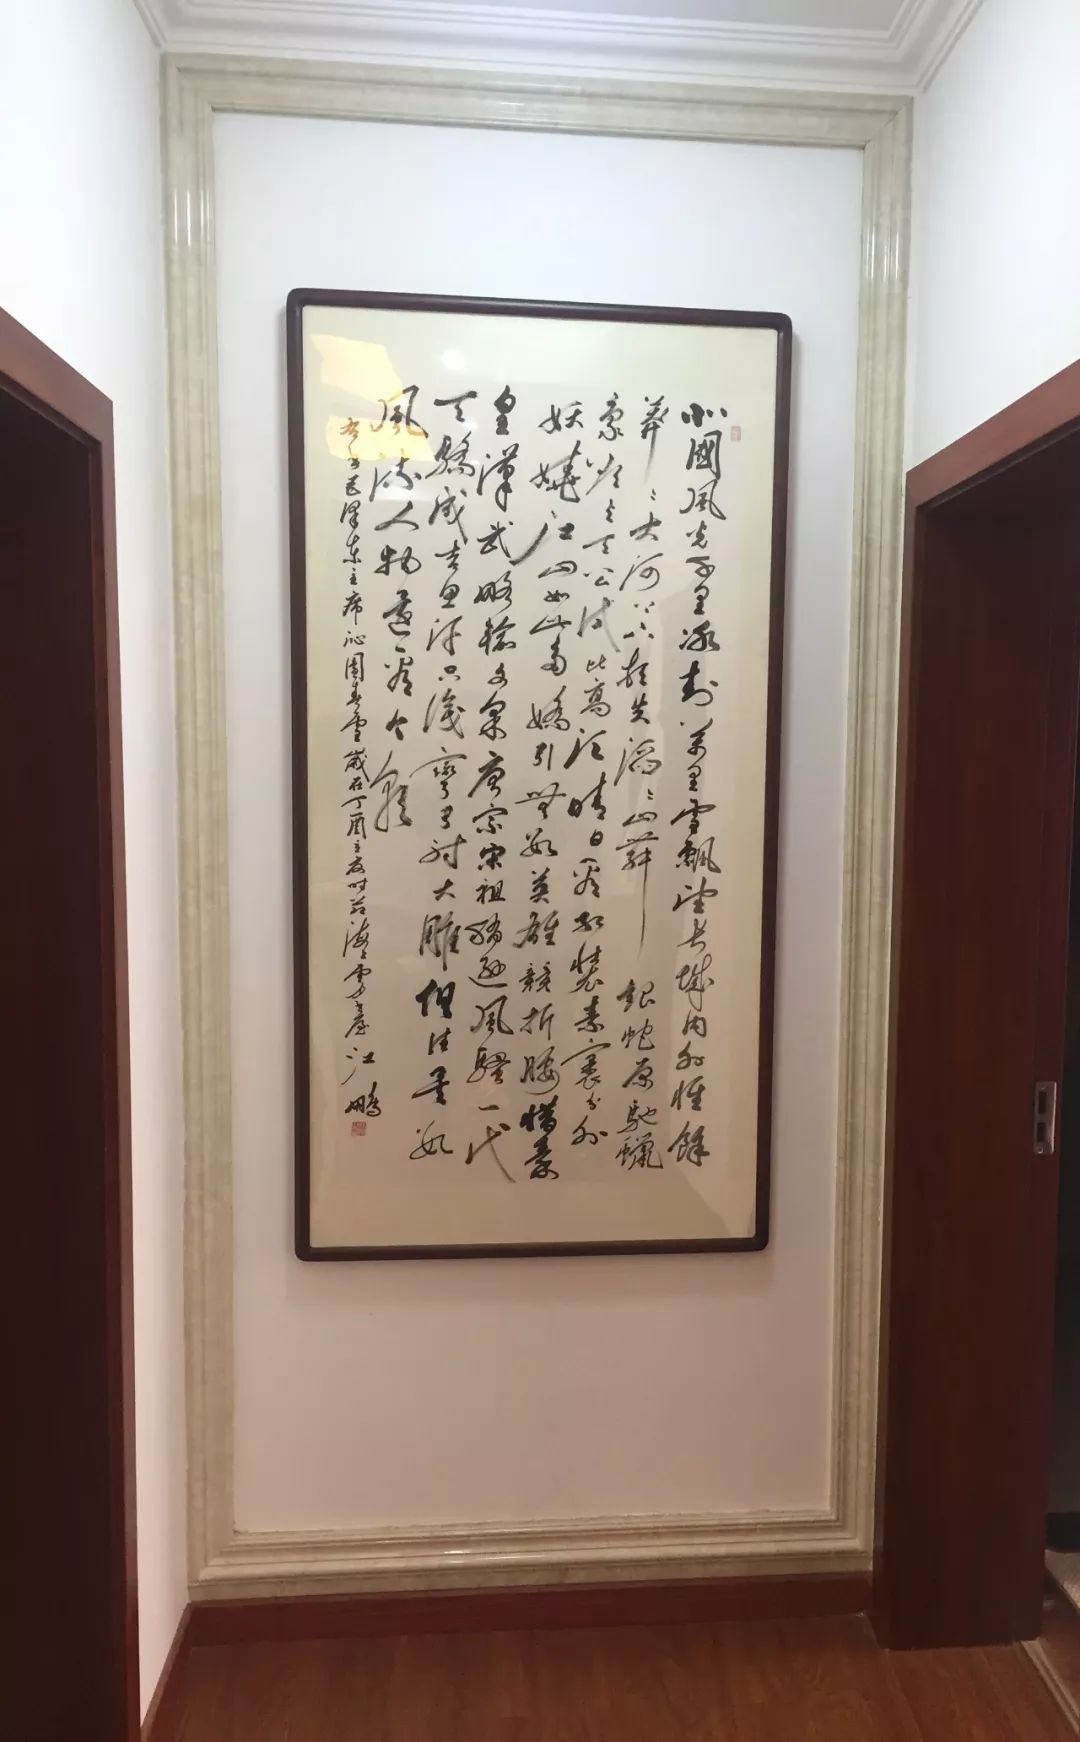 北國風光千里冰封萬里雪飄望長城內外惟餘
莽〻大河上下頓失滔〻山舞銀蛇原馳蠟
象欲與天公試比高須晴日看紅裝素裹分外
妖嬈江山如此多嬌引無數英雄競折腰惜秦
皇漢武略輸文采唐宗宋祖稍遜風騷一代
天驕成吉思汗只識彎弓射大雕俱往矣數
風流人物還看今朝
書毛澤東主席沁園春雪歲在丁酉之夏時於海江鵬